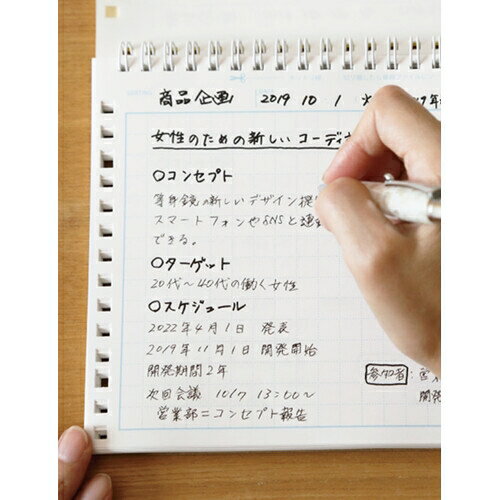 商品企画 2019 10 1
女性のための新しいコーディ
○コンセプト
等身鏡の新しいデザイン提
スマートフォンやSNSと連
できる。
○ターゲット
20代〜40代の働く女性
○スケジュール
2022年4月1日 発表
2019年11月1日 開発開始
開発期間2年
参加者:宮
次回会議 10/7 13:00〜
開発
営業部=コンセプト報告